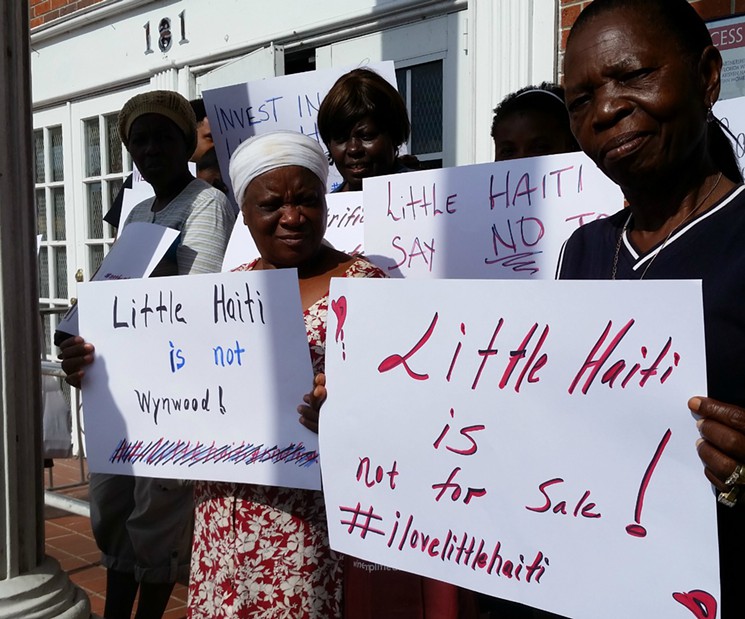 181
CESS
INVEST IN
Little HAITI
SAY NO TO
Little Haiti
is not
Wynwood!
Little Haiti
is
not for sale!
#ilovelittlehaiti